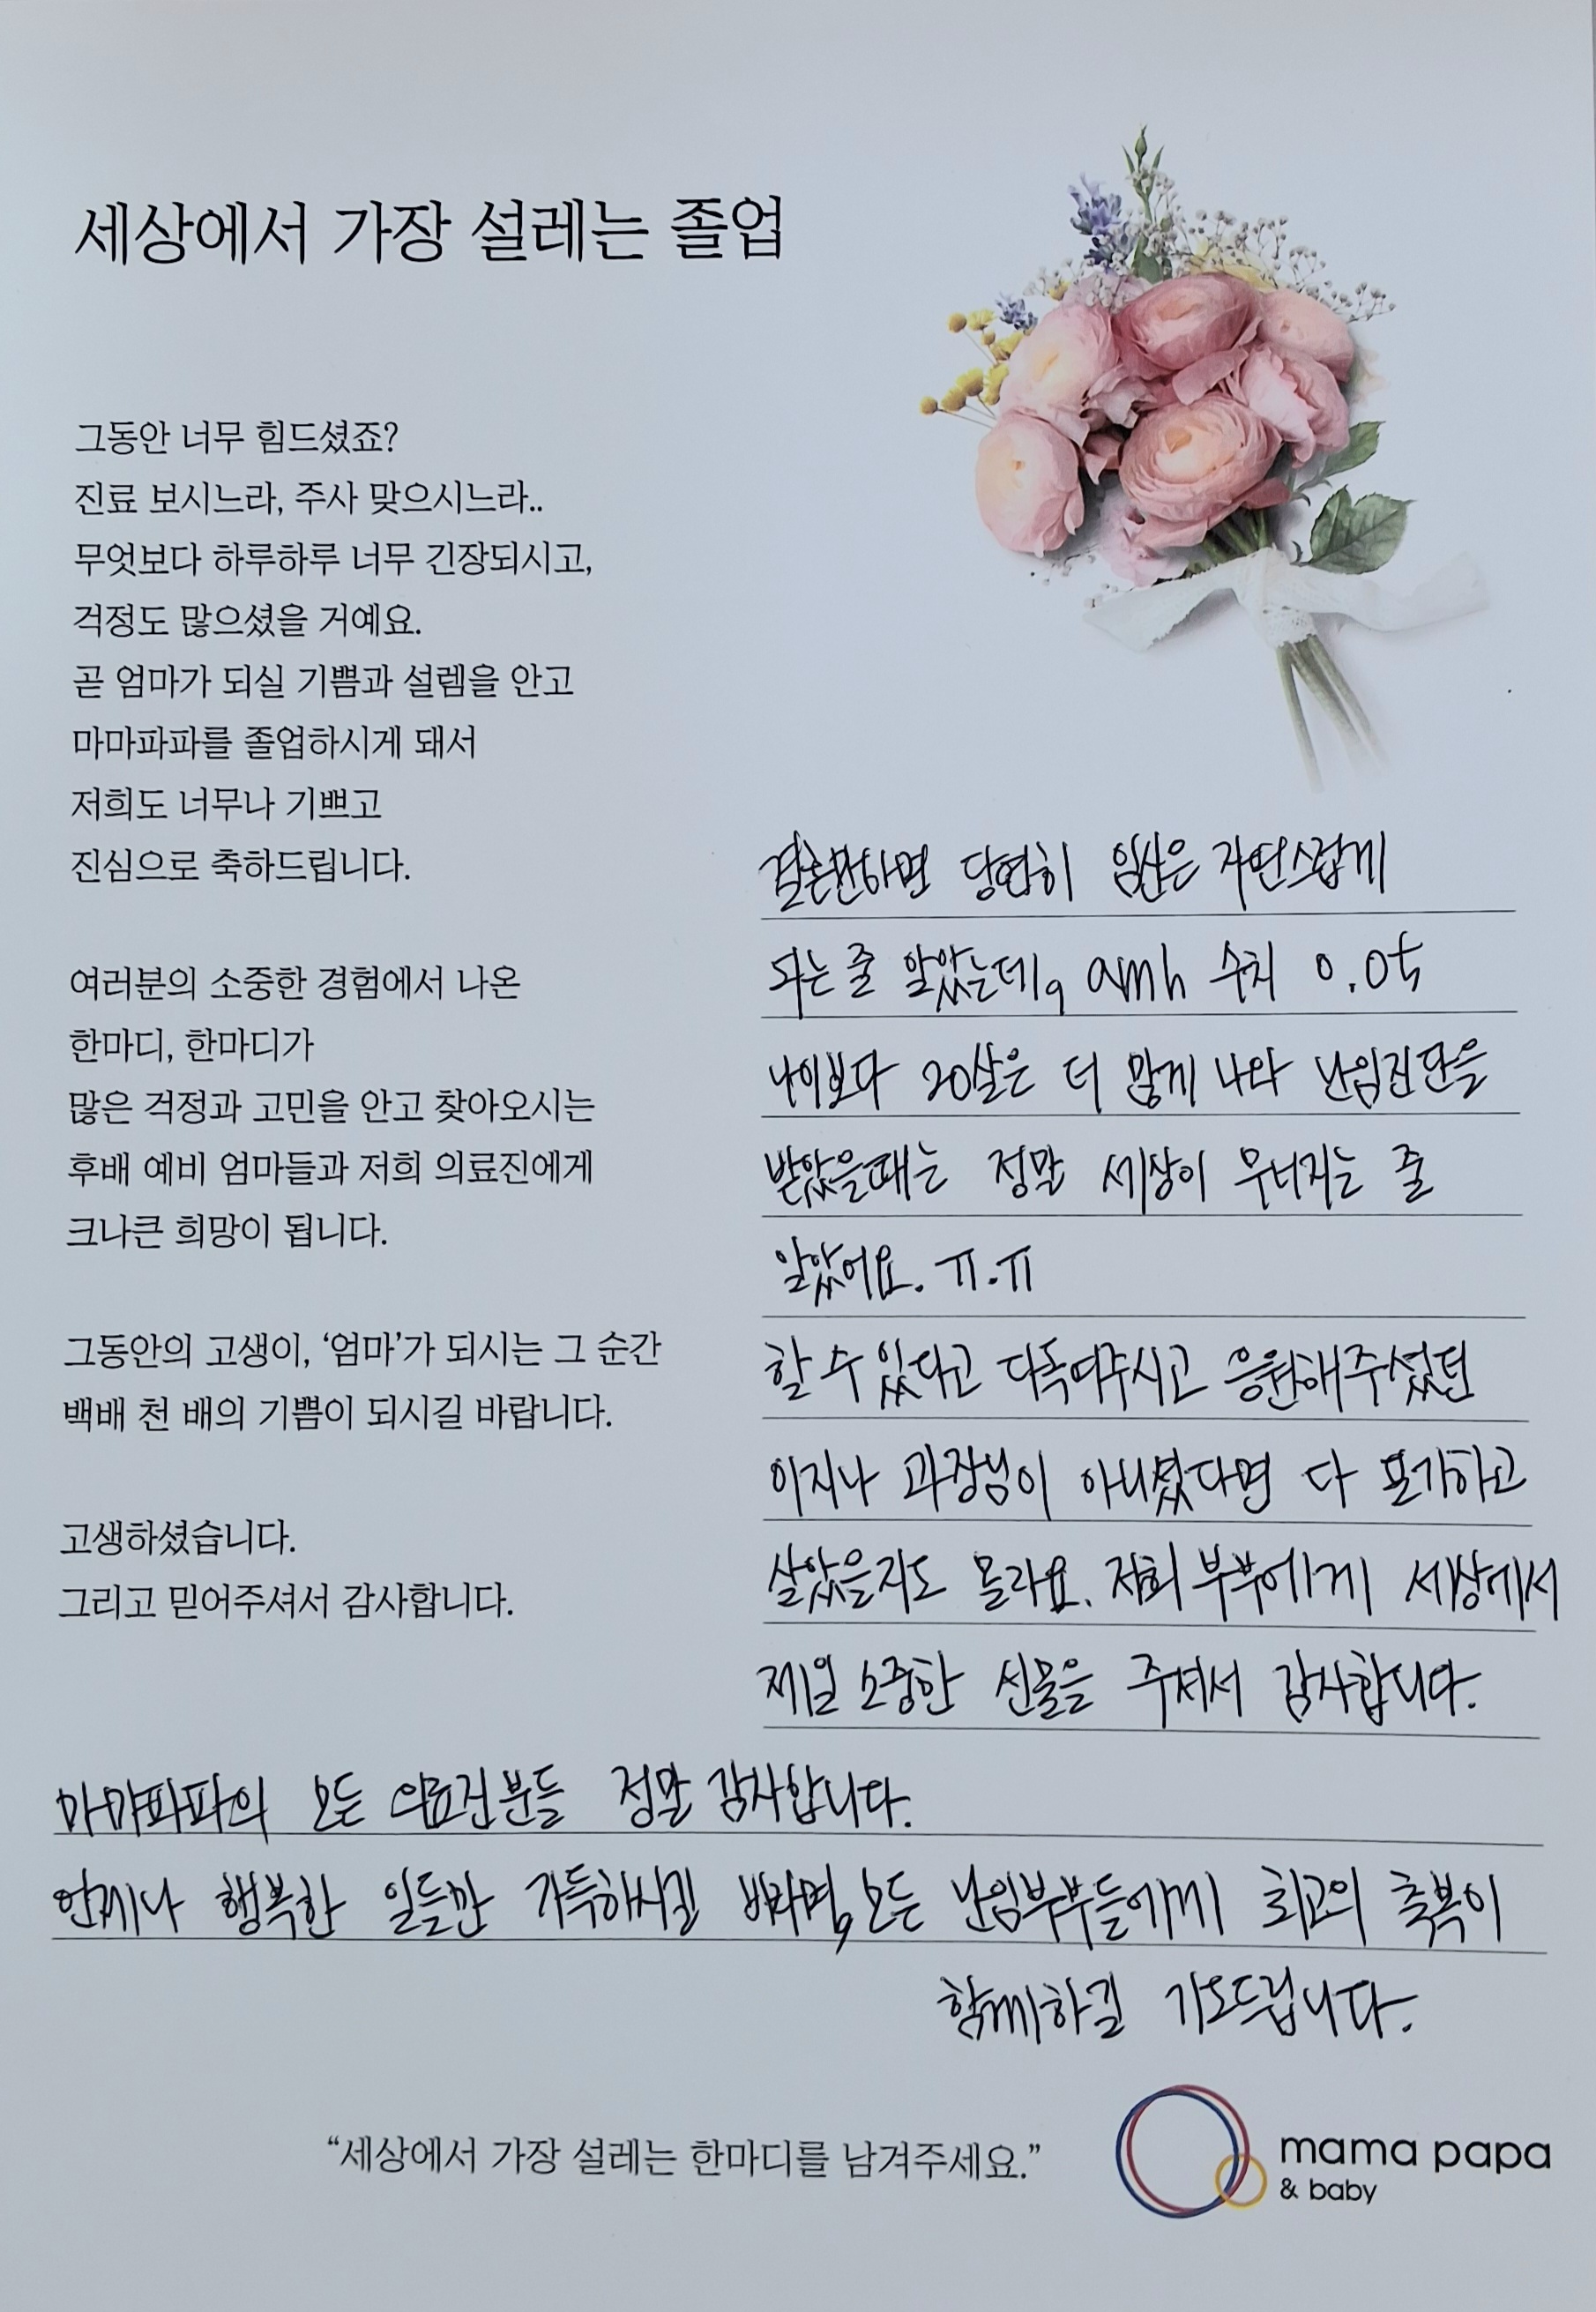 세상에서 가장 설레는 졸업
그동안 너무 힘드셨죠?
진료 보시느라, 주사 맞으시느라..
무엇보다 하루하루 너무 긴장되시고,
걱정도 많으셨을 거예요.
곧 엄마가 되실 기쁨과 설렘을 안고
마마파파를 졸업하시게 돼서
저희도 너무나 기쁘고
진심으로 축하드립니다.
여러분의 소중한 경험에서 나온
한마디, 한마디가
많은 걱정과 고민을 안고 찾아오시는
후배 예비 엄마들과 저희 의료진에게
크나큰 희망이 됩니다.
그동안의 고생이, ‘엄마’가 되시는 그 순간
백배 천 배의 기쁨이 되시길 바랍니다.
고생하셨습니다.
그리고 믿어주셔서 감사합니다.
결혼만하면 당연히 임신은 자연스럽게
되는 줄 알았는데, amh 수치 0.05
나이보다 20살은 더 많게 나와 난임진단을
받았을때는 정말 세상이 무너지는 줄
알았어요. ㅠ.ㅠ
할 수 있다고 다독여주시고 응원해주셨던
이지나 과장님이 아니셨다면 다 포기하고
살았을지도 몰라요. 저희 부부에게 세상에서
제일 소중한 선물을 주셔서 감사합니다.
마마파파의 모든 의료진분들 정말 감사합니다.
언제나 행복한 일들만 가득하시길 바라며, 모든 난임부부들에게 최고의 축복이
함께하길 기도드립니다.
“세상에서 가장 설레는 한마디를 남겨주세요.”
mama papa
& baby